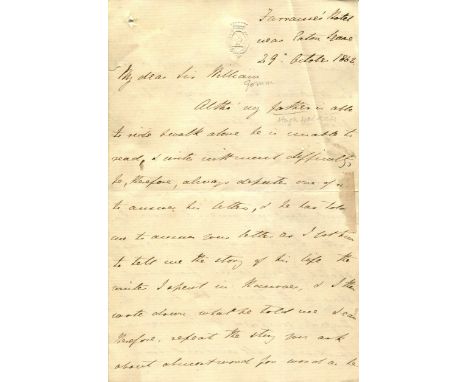 Farrance's Hotel
near Eaton Square
29th October 1862
My dear Sir William
Gomm
Altho' my father is able
Hugh Halkett
to ride & walk alone he is unable to
read, & writes with much difficulty,
he, therefore, always deputes one of us
to answer his letters, & he has told
me to answer your letter as I got him
to tell me the story of his life the
winter I spent in Hanover, & I then
wrote down what he told me I can
therefore, repeat the story you ask
about almost word for word as he